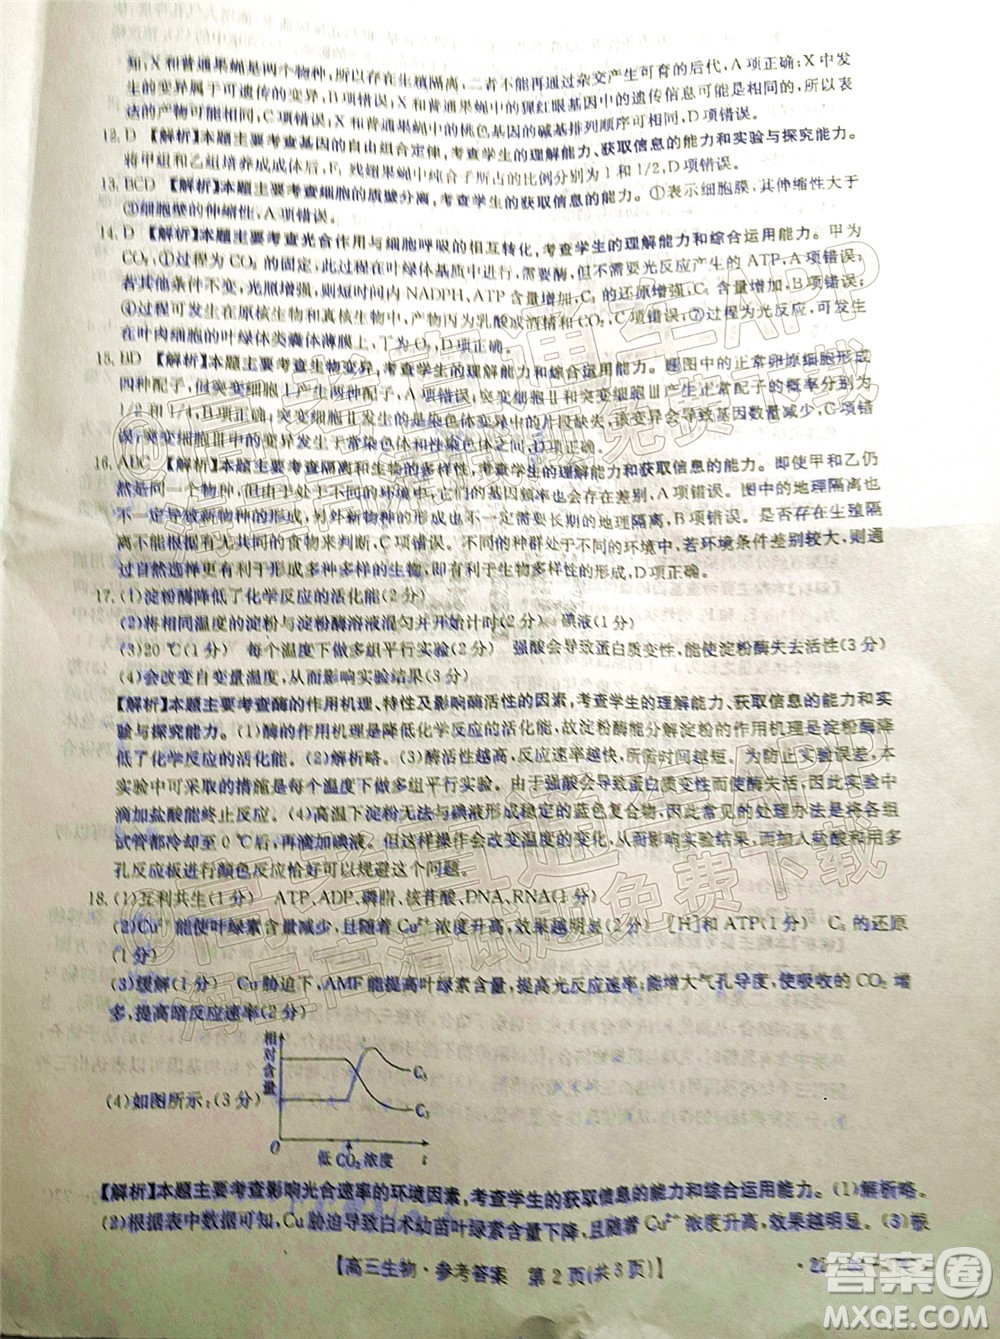 知,X和普通果蝇是两个物种,所以存在生殖隔离,二者不能再通过杂交产生可育的后代,A项正确;X中发
生的变异属于可遗传的变异,B项错误;X和普通果蝇中的猩红眼基因中的遗传信息可能是相同的,所以表
达的产物可能相同,C项错误;X和普通果蝇中的桃色基因的碱基排列顺序可能相同,D项错误。
12. D 【解析】本题主要考查基因的自由组合定律,考查学生的理解能力、获取信息的能力和实验与探究能力。
将甲组和乙组培养成成体后,F₁残翅果蝇中纯合子所占的比例分别为1和1/2,D项错误。
13. BCD 【解析】本题主要考查细胞的质壁分离,考查学生的获取信息的能力。①表示细胞膜,其伸缩性大于
③细胞壁的伸缩性,A项错误。
14. D 【解析】本题主要考查光合作用与细胞呼吸的相互转化,考查学生的理解能力和综合运用能力。甲为
CO₂,①过程为CO₂的固定,此过程在叶绿体基质中进行,需要酶,但不需要光反应产生的ATP,A项错误;
若其他条件不变,光照增强,则短时间内NADPH、ATP含量增加,C₃的还原增强,C₅含量增加,B项错误;
④过程可发生在原核生物和真核生物中,产物为乳酸或酒精和CO₂,C项错误;②过程为光反应,可发生
在叶肉细胞的叶绿体类囊体薄膜上,D项正确。
15. BD 【解析】本题主要考查生物变异,考查学生的理解能力和综合运用能力。题图中的正常卵原细胞能形成
四种配子,但突变细胞Ⅰ只能形成两种配子,A项错误;突变细胞Ⅱ和突变细胞Ⅲ产生正常配子的概率分别为
1/2和1/4,B项正确;突变细胞Ⅱ发生的是染色体中的片段缺失,该变异会导致基因数量减少,C项错误;
突变细胞Ⅲ中的变异发生于常染色体和性染色体之间,D项正确。
16. ABC 【解析】本题主要考查隔离和生物的多样性,考查学生的理解能力和获取信息的能力。即使甲和乙仍
然是同一个物种,但由于处于不同的环境中,它们的基因频率也可能会存在差别,A项错误。图中的地理隔离也
不一定导致新物种的形成,另外新物种的形成也不一定需要长期的地理隔离,B项错误。是否存在生殖隔
离不能根据有无共同的食物来判断,C项错误。不同的种群处于不同的环境下,若环境条件差别较大,则可通
过自然选择形成多种多样的生物,即有利于生物多样性的形成,D项正确。
17. (1)淀粉酶降低了化学反应的活化能(2分)
(2)将相同温度的淀粉与淀粉酶溶液混匀并开始计时(2分) 碘液(1分)
(3)20 ℃(1分) 每个温度下做多组平行实验(2分) 强酸会导致蛋白质变性,能使淀粉酶失去活性(3分)
(4)会改变自变量温度,从而影响实验结果(3分)
【解析】本题主要考查酶的作用机理、特性及影响酶活性的因素,考查学生的理解能力、获取信息的能力和实
验与探究能力。(1)酶的作用机理是降低化学反应的活化能,故淀粉酶能分解淀粉的作用机理是淀粉酶降
低了化学反应的活化能。(2)解析略。(3)酶活性越高,反应速率越快,所需的时间越短。为防止实验误差,可
以采取的措施是每个温度下做多组平行实验。由于强酸会导致蛋白质变性而使酶失活,因此实验中
滴加盐酸能终止反应。(4)高温下淀粉无法与碘液形成稳定的蓝色复合物,因此常见的处理办法是将
试管都冷却至0 ℃后,再滴加碘液。但这样操作会改变温度,可能影响实验结果,而加入盐酸和用多
孔反应板进行颜色反应恰好可以规避这个问题。
18. (1)互利共生(1分) ATP、ADP、磷脂、核苷酸、DNA、RNA(1分)
(2)Cu²⁺能使叶绿素含量减少,且随着Cu²⁺浓度升高,效果越明显(2分) [H]和ATP(1分) C₃的还原
(1分)
(3)缓解(1分) Cu胁迫下,AMF能提高叶绿素含量,提高光反应速率;能增大气孔导度,使吸收的CO₂增
多,提高暗反应速率(2分)
(4)如图所示:(3分)
相对含量
C₃
C₅
O
低CO₂浓度 t
【解析】本题主要考查影响光合速率的环境因素,考查学生的获取信息的能力和综合运用能力。(1)解析略。
(2)根据表中数据可知,Cu胁迫导致白术幼苗叶绿素含量下降,且随着Cu²⁺浓度升高,效果越明显。(3)根
【高三生物·参考答案 第2页(共3页)】
答案圈
MXQE.COM